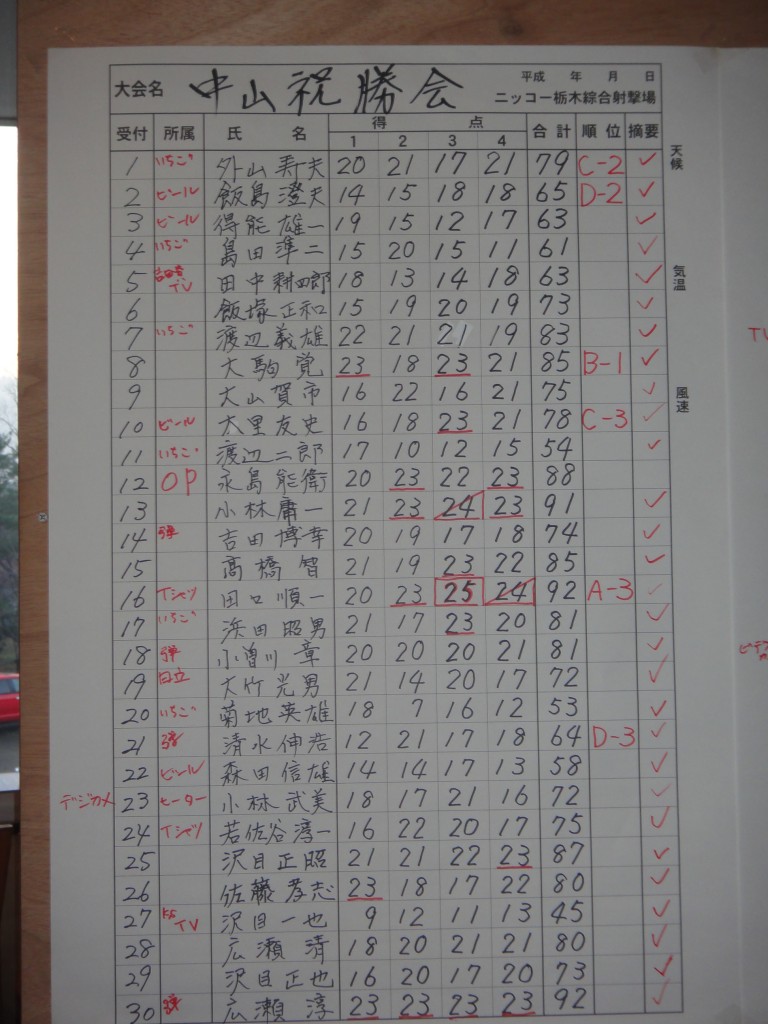 大会名 中山祝勝会 平成 年 月 日
ニッコー栃木綜合射撃場
受付 所属 氏 名 得 点 合計 順位 摘要
1 2 3 4
天候
気温
風速
1 いちご 外山寿夫 20 21 17 21 79 C-2 ✓
2 ビール 飯島澄夫 14 15 18 18 65 D-2 ✓
3 ビール 得能雄一 19 15 12 17 63 ✓
4 いちご 島田準二 15 20 15 11 61 ✓
5 TV 田中耕四郎 18 13 14 18 63 ✓
6 飯塚正和 15 19 20 19 73 ✓
7 いちご 渡辺義雄 22 21 21 19 83 ✓
8 大駒覚 23 18 23 21 85 B-1 ✓
9 大山賀市 16 22 16 21 75 ✓
10 ビール 大里友史 16 18 23 21 78 C-3 ✓
11 いちご 渡辺二郎 17 10 12 15 54 ✓
12 OP 永島能衛 20 23 22 23 88
13 小林庸一 21 23 24 23 91 ✓
14 弾 吉田博幸 20 19 17 18 74 ✓
15 高橋智 21 19 23 22 85 ✓
16 Tシャツ 田口順一 20 23 25 24 92 A-3 ✓
17 いちご 浜田昭男 21 17 23 20 81 ✓
18 弾 小曽川章 20 20 20 21 81 ✓
19 日立 大竹光男 21 14 20 17 72 ✓
20 いちご 菊地英雄 18 7 16 12 53 ✓
21 弾 清水伸浩 12 21 17 18 64 D-3 ✓
22 ビール 森田信雄 14 14 17 13 58 ✓
デジカメ 23 ヒーター 小林武美 18 17 21 16 72 ✓
24 Tシャツ 若佐谷淳一 16 22 20 17 75 ✓
25 沢目正照 21 21 22 23 87 ✓
26 佐藤孝志 23 18 17 22 80 ✓
27 TV 沢目一也 9 12 11 13 45 ✓
28 広瀬清 18 20 21 21 80 ✓
29 沢目正也 16 20 17 20 73 ✓
30 弾 広瀬淳 23 23 23 23 92 ✓
TV